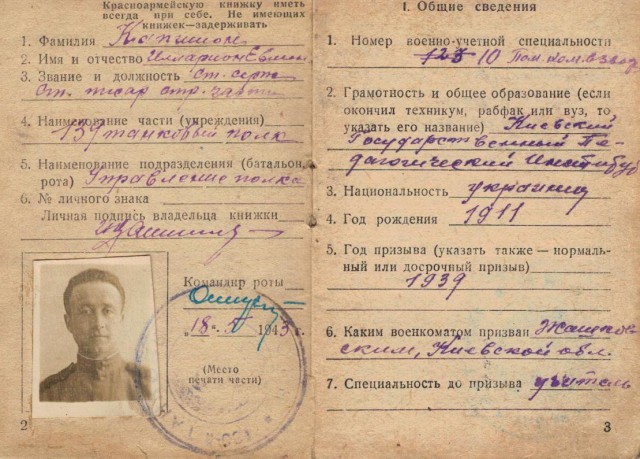 Красноармейскую книжку иметь
всегда при себе. Не имеющих
книжек—задерживать
1. Фамилия
2. Имя и отчество Иларион
3. Звание и должность Ст. серж
Ст. писар стр. части
4. Наименование части (учреждения)
139 танковый полк
5. Наименование подразделения (батальон,
рота) Управление полка
6. № личного знака
Личная подпись владельца книжки
Командир роты
„18“ 1943 г.
(Место
печати части)
2
I. Общие сведения
1. Номер военно-учетной специальности
10 Пом. ком. взвод
2. Грамотность и общее образование (если
окончил техникум, рабфак или вуз, то
указать его название) Киевский
Государственный Пе-
дагогический Институт
3. Национальность украинец
4. Год рождения 1911
5. Год призыва (указать также — нормаль-
ный или досрочный призыв)
1939
6. Каким военкоматом призван Жашков-
ским, Киевской обл.
7. Специальность до призыва учитель
3